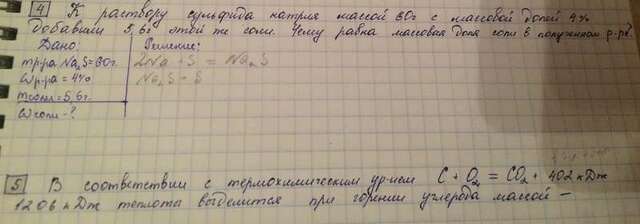 4 К раствору сульфида натрия массой 80г с массовой долей 4%
добавили 5,6г этой же соли. Чему равна массовая доля соли в полученном р-ре?
Дано: Решение:
mр-ра Na₂S = 80г. 2Na + S = Na₂S
Wр-ра = 4% Na₂S - S
mсоли = 5,6г.
Wсоли - ?
5 В соответствии с термохимическим ур-ием C + O₂ = CO₂ + 402 кДж
1206 кДж теплота выделится при горении углерода массой -